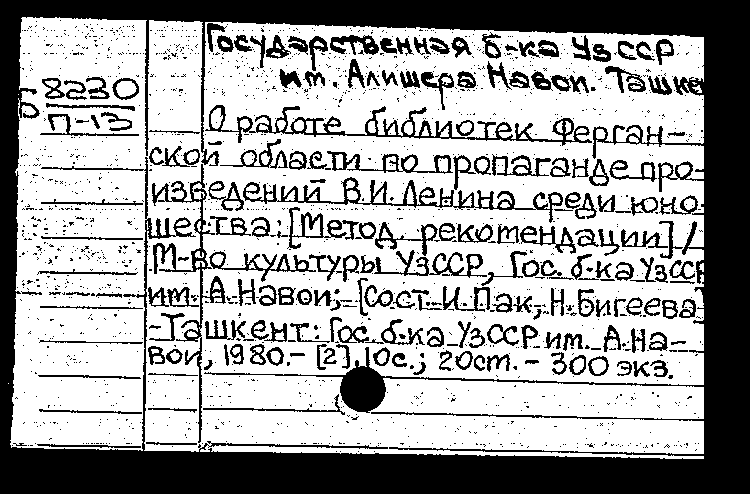 Государственная б-ка УзССР
им. Алишера Навои. Ташке
Б 8230
П-13
О работе библиотек Ферган-
ской области по пропаганде про-
изведений В.И.Ленина среди юно-
шества: [Метод. рекотендации] /
М-во культуры УзССР, Гос. б-ка УзССР
им. А.Навои; [Сост. И.Пак, Н.Бигеева]
-Ташкент: Гос. б-ка УзССР им. А.На-
вои, 1980.- [2], 10с.; 20ст. - 300 экз.